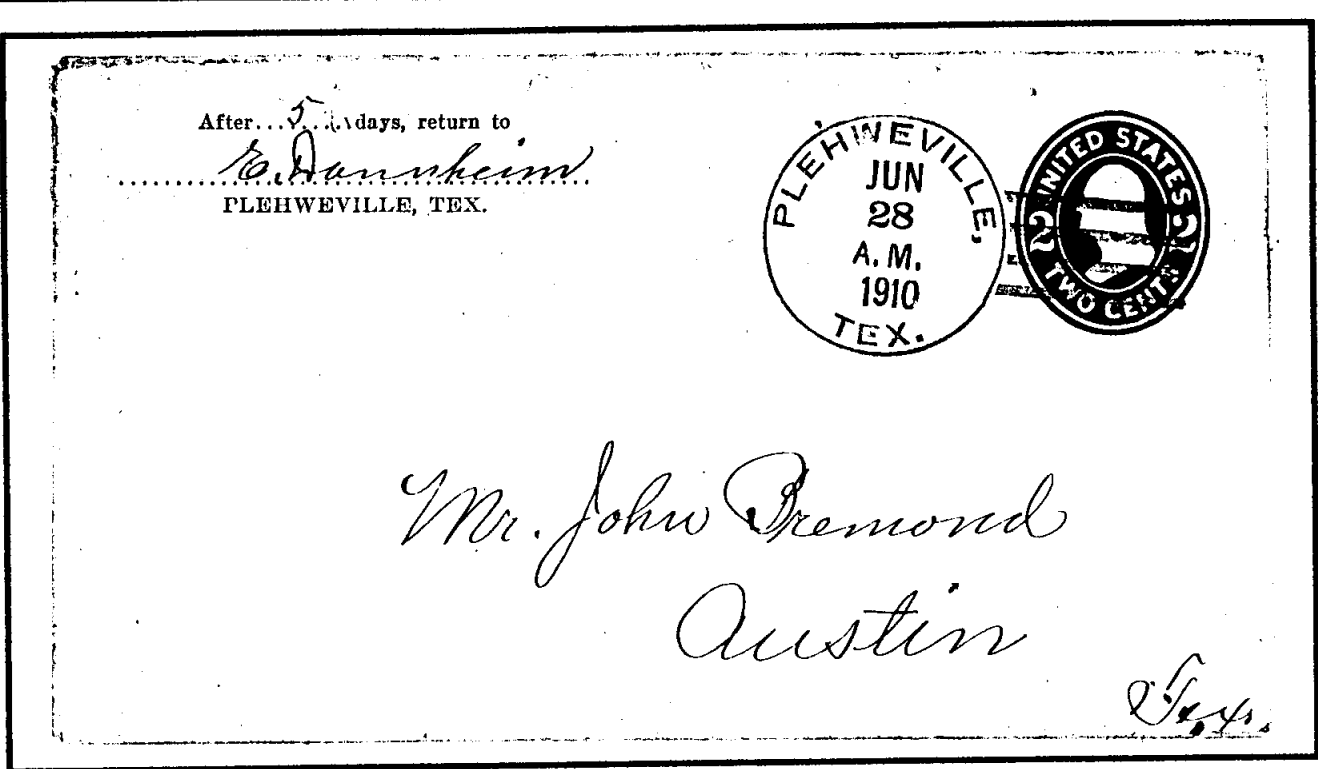 After...5...days, return to
E. Dannheim
PLEHWEVILLE, TEX.
PLEHWEVILLE,
JUN
28
A. M.
1910
TEX.
UNITED STATES
2 2
TWO CENTS
Mr. John Bremond
Austin
Tex.